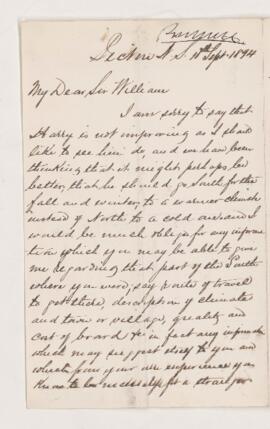 Pictou N. S. 11th Sept. 1894
My Dear Sir William
I am sorry to say that
Harry is not improving as I should
like to see him do, and we have been
thinking that it might perhaps be
better, that he should go South for the
fall and winter, to a warmer climate
instead of North to a cold one, and I
would be much obliged for any informa
tion which you may be able to give
me regarding that part of the South
where you were, say route of travel
to get there, description of climate
and town or village, quality and
cost of board &c in fact any information
which may suggest itself to you and
which from your own experience you
know to be necessary for a stranger